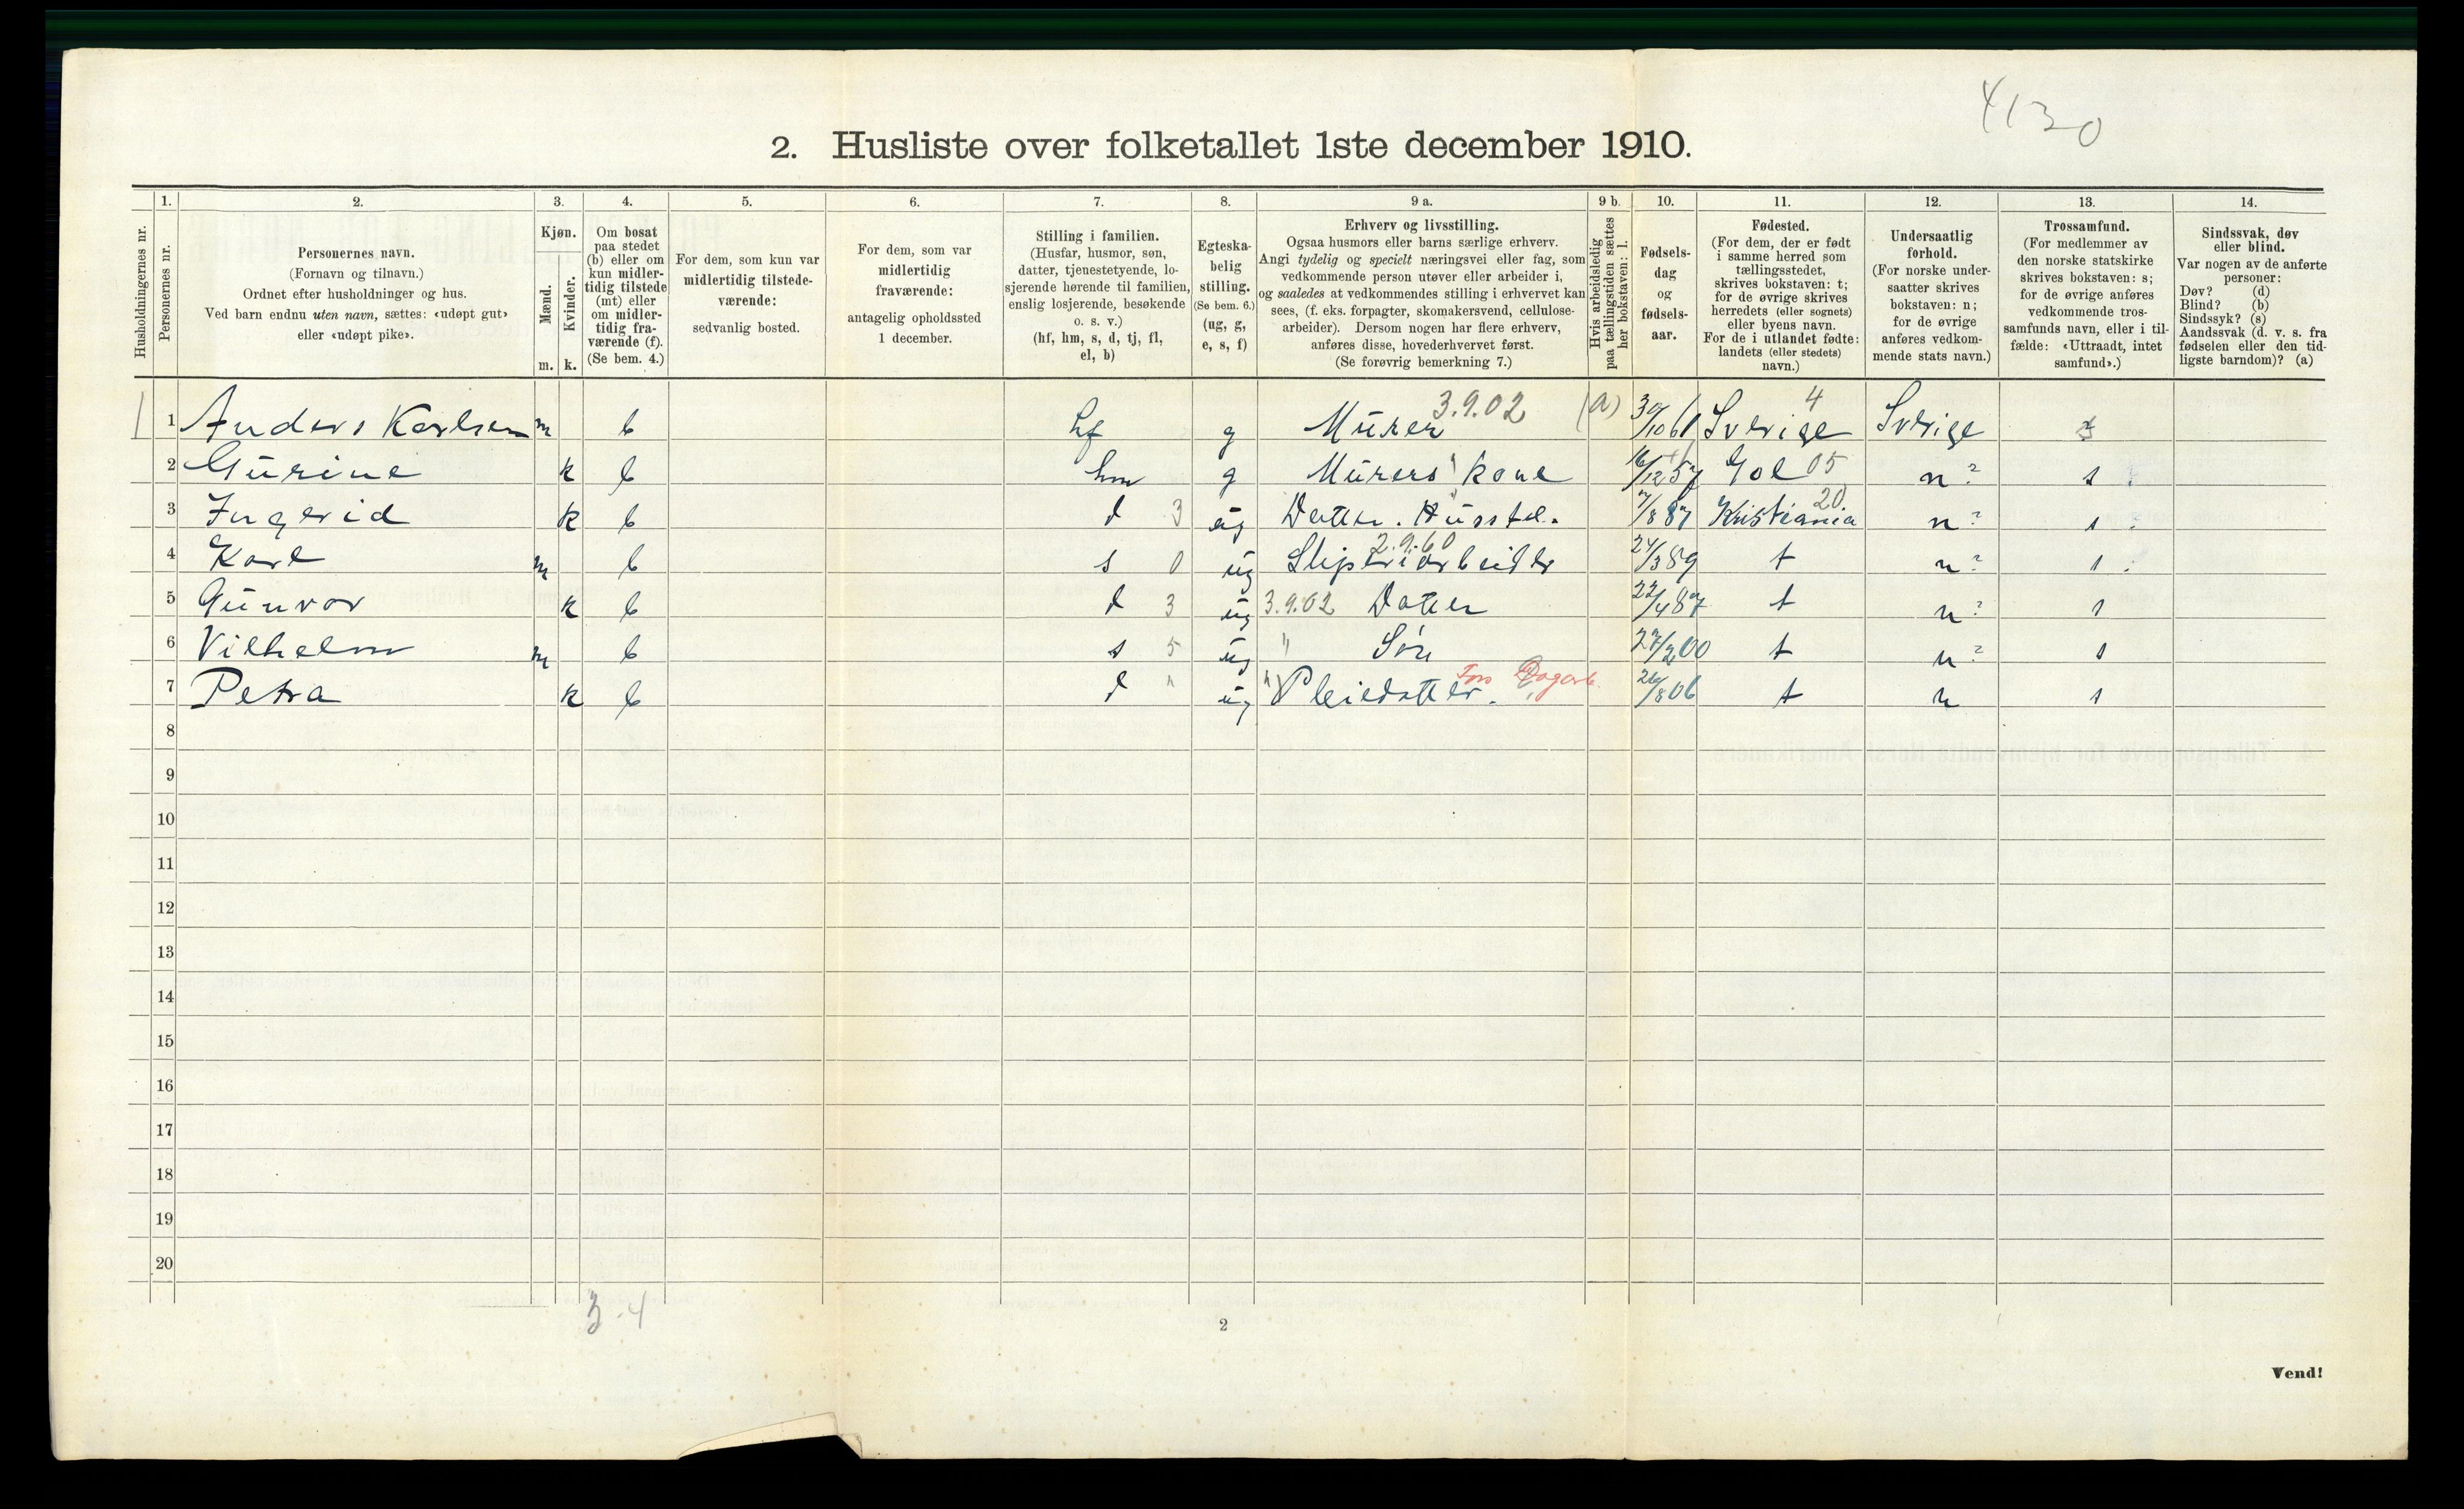 4130
2. Husliste over folketallet 1ste december 1910.
Husholdningernes nr.
1. Personernes nr.
2. Personernes navn.
(Fornavn og tilnavn.)
Ordnet efter husholdninger og hus.
Ved barn endnu uten navn, sættes: «udøpt gut»
eller «udøpt pike».
3. Kjøn.
Mænd. Kvinder.
m. k.
4. Om bosat
paa stedet
(b) eller om
kun midler-
tidig tilstede
(mt) eller
om midler-
tidig fra-
værende (f).
(Se bem. 4.)
5. For dem, som kun var
midlertidig tilstede-
værende:
sedvanlig bosted.
6. For dem, som var
midlertidig
fraværende:
antagelig opholdssted
1 december.
7. Stilling i familien.
(Husfar, husmor, søn,
datter, tjenestetyende, lo-
sjerende hørende til familien,
enslig losjerende, besøkende
o. s. v.)
(hf, hm, s, d, tj, fl,
el, b)
8. Egteska-
belig
stilling.
(Se bem. 6.)
(ug, g,
e, s, f)
9 a. Erhverv og livsstilling.
Ogsaa husmors eller barns særlige erhverv.
Angi tydelig og specielt næringsvei eller fag, som
vedkommende person utøver eller arbeider i,
og saaledes at vedkommendes stilling i erhvervet kan
sees, (f. eks. forpagter, skomakersvend, cellulose-
arbeider). Dersom nogen har flere erhverv,
anføres disse, hovederhvervet først.
(Se forøvrig bemerkning 7.)
9 b. Hvis arbeidsledig
paa tællingstiden sættes
her bokstaven: l.
10. Fødsels-
dag
og
fødsels-
aar.
11. Fødested.
(For dem, der er født
i samme herred som
tællingsstedet,
skrives bokstaven: t;
for de øvrige skrives
herredets (eller sognets)
eller byens navn.
For de i utlandet fødte:
landets (eller stedets)
navn.)
12. Undersaatlig
forhold.
(For norske under-
saatter skrives
bokstaven: n;
for de øvrige
anføres vedkom-
mende stats navn.)
13. Trossamfund.
(For medlemmer av
den norske statskirke
skrives bokstaven: s;
for de øvrige anføres
vedkommende tros-
samfunds navn, eller i til-
fælde: «Uttraadt, intet
samfund».)
14. Sindssvak, døv
eller blind.
Var nogen av de anførte
personer:
Døv? (d)
Blind? (b)
Sindssyk? (s)
Aandssvak (d. v. s. fra
fødselen eller den tid-
ligste barndom)? (a)
1 1 Anders Karlsen m b hf g Murer 3.9.02 (a) 30/10 61 Sverige 4 Sverige s
2 Gurine k b hm g Murers kone 16/12 57 Gol 05 n ? s
3 Ingerid k b d 3 ug Datter. Husstel. 7/8 87 Kristiania 20 n ? s
4 Karl m b s 0 ug Sliperiarbeider 2.9.60 24/3 89 t n ? s
5 Gunvor k b d 3 ug 3.9.02 Datter 22/4 87 t n ? s
6 Vilhelm m b s 5 ug " Søn 27/2 00 t n ? s
7 Petra k b d " ug " Pleiedatter. Dagarb. 26/8 06 t n s
8
9
10
11
12
13
14
15
16
17
18
19
20
3-4
2
Vend!